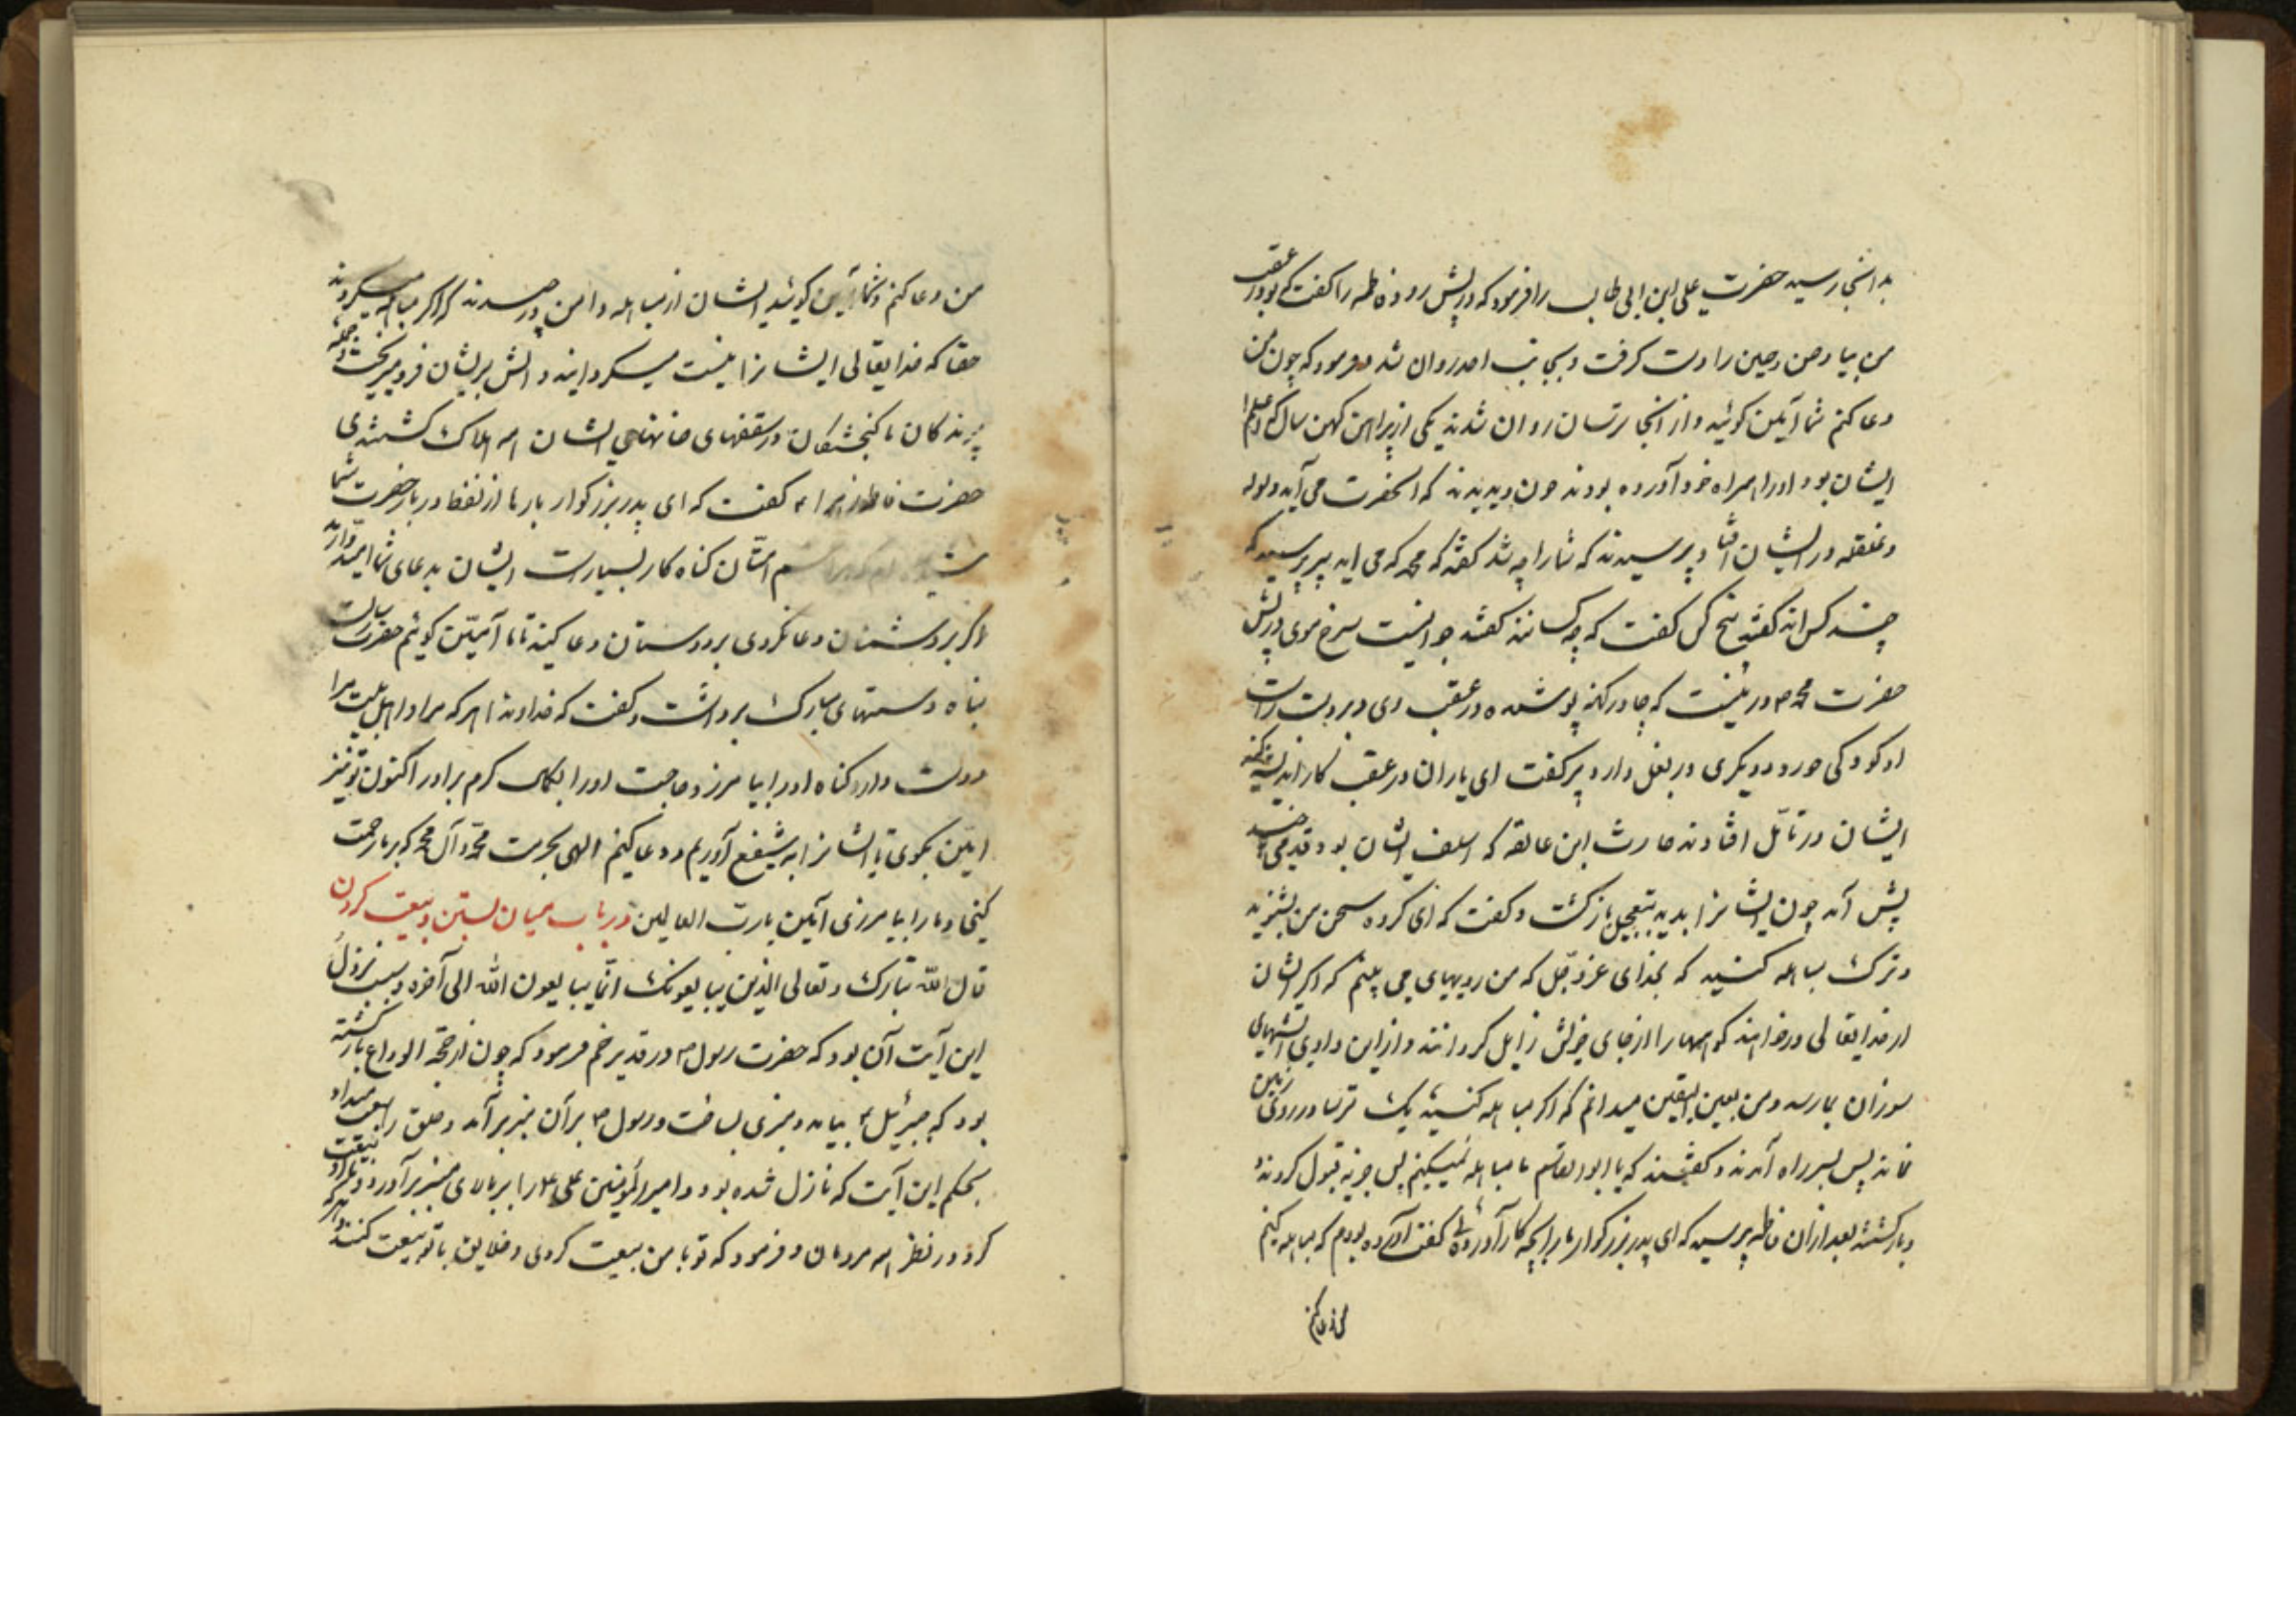 بدانجا رسید حضرت علی ابن ابی طالب را فرمود که در پیش رو و فاطمه را گفت که تو در عقب
من بیا و حسن و حسین را دست گرفت و بجانب احد روان شد و فرمود که چون من
دعا کنم شما آمین کوئید و از آنجا ترسان روان شدند یکی از پیران کهن سال که
ایشان بود او را همراه خود آورده بودند چون دیدند که آنحضرت می آید ولوله
و غلغله در ایشان افتاد پرسیدند که شما را چه شد گفتند که محمد که می اید پیر پرسید که
چند کس اند گفتند پنج کس گفت که چه کسانند گفتند جوانیست سرخ موی در پیش
حضرت محمد ص و زنیست که چادر کهنه پوشیده در عقب وی و بر دست راست
او کودکی خورد و دیگری در بغل دارد پیر گفت ای یاران در عقب کار اندیشه کنید
ایشان در تأمل افتادند حارث ابن عالقه که اسلف ایشان بود قدمی چند
پیش آمد چون ایشانرا بدید بتعجیل بازگشت و گفت که ای گروه سخن من بشنوید
و ترک مباهله کنید که بخدای عز و جل که من رویهای می بینم که اگر ایشان
از خدایتعالی درخواهند کوهها را از جای خویش زایل گردانند و از این وادی آتشهای
سوزان بما رسد و من بعین الیقین میدانم که اگر مباهله کنید یک ترسا در روی زمین
نماند پس بسر راه آمدند و گفتند که یا ابوالقاسم ما مباهله نمیکنیم پس جزیه قبول کردند و
بازگشتند بعد از ان فاطمه پرسید که ای پدر بزرگوار ما را بچه کار آورده ئی گفت آورده بودم که مباهله کنیم
من دعا کنم
من دعا کنم و شما آمین کوئید ایشان از مباهله دامن در چیدند که اگر مباهله میکردند
حقا که خدایتعالی ایشانرا نیست میگردانید و آتش بر ایشان فرو میریخت و جمله
پرندگان تا گنجشکان در سقفهای خانهای ایشان همه هلاک گشتندی
حضرت فاطمه زهرا ع گفت که ای پدر بزرگوار بار ما از نفقا در بار حضرت شما
امتان گناه کار بسیارست ایشان بدعای شما امیدوارند
اگر بر دشمنان دعا نکردی بر دوستان دعا کنید تا ما آمین کوئیم حضرت رسالت
پناه دستهای مبارک برداشت و گفت که خداوندا هر که مرا و اهل بیت مرا
دوست دارد گناه او را بیامرز و حاجت او را بکمال کرم برآور اکنون تو نیز
آمین بگوی تا ایشانرا به شفیع آوریم و دعا کنیم الهی بحرمت محمد و آل محمد که بر ما رحمت
کنی و ما را بیامرزی آمین یا رب العالمین در باب میان بستن و بیعت کردن
قال الله تبارک و تعالی الذین یبایعونک انما یبایعون الله الی آخره و سبب نزول
این آیت آن بود که حضرت رسول ص در قدیر خم فرمود که چون از حجة الوداع بازگشته
بود که جبرئیل ع بیامد و منبری بساخت و رسول ص بر آن منبر برآمد و خلق را بیعت میداد
بحکم این آیت که نازل شده بود و امیرالمؤمنین علی ع را بر بالای منبر برآورد و بیعت
کرد در نظر همه مردمان و فرمود که تو با من بیعت کردی و خلایق با تو بیعت کنند